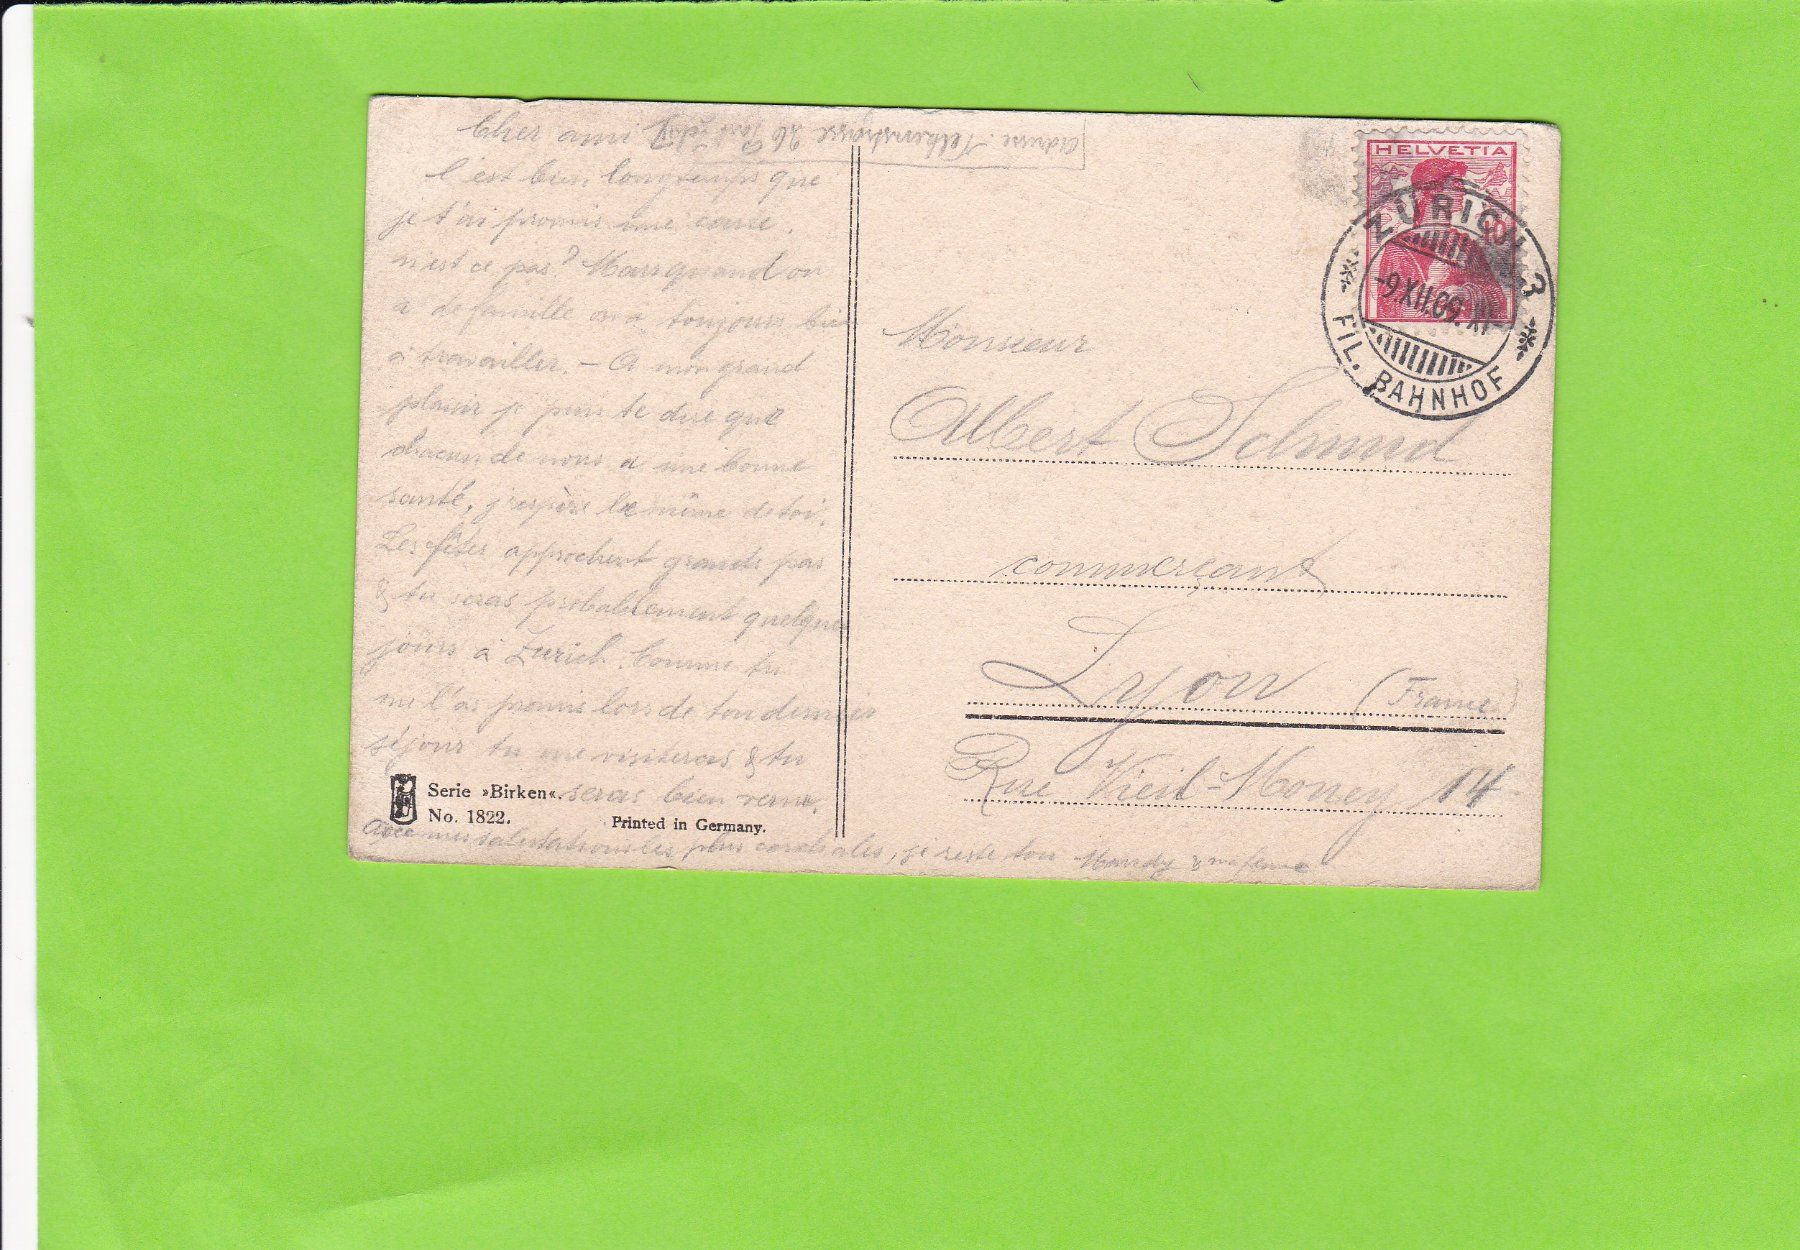 Cher ami
C'est bien longtemps que
je t'ai promis une carte.
n'est ce pas? Mais quand on
a de famille on a toujours bien
à travailler. — A mon grand
plaisir je puis te dire que
chacun de nous a une bonne
santé, j'espère le même de toi.
Les fêtes approchent grands pas
& tu seras probablement quelques
jours à Zurich. Comme tu
me l'as promis lors de ton dernier
séjour tu me visiteras & tu
seras bien venu.
Avec mes salutations les plus cordiales, je reste ton & ma femme
adresse: 26
Serie »Birken«.
No. 1822.
Printed in Germany.
HELVETIA
10
ZÜRICH 3
-9.XII.09.XI-
FIL. BAHNHOF
Monsieur
Albert Schmid
commerçant
Lyon (France)
Rue Vieil-Money 14